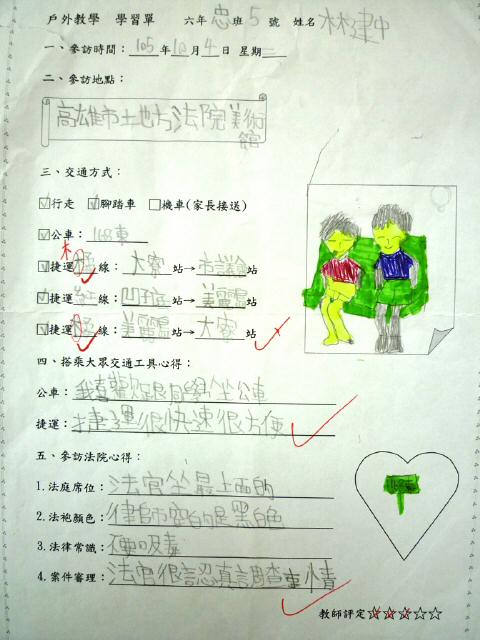 戶外教學 學習單 六年忠班5號 姓名林建中
一、參訪時間：105年10月4日 星期二
二、參訪地點：
高雄市土地方法院美術
館
三、交通方式：
☑行走 ☑腳踏車 □機車(家長接送)
☑公車：168東
☑捷運 線：大寮站→市議會站
☑捷運 線：凹子底站→美麗島站
☑捷運 線：美麗島站→大寮站
四、搭乘大眾交通工具心得：
公車：我喜歡跟同學坐公車
捷運：捷運很快速很方便
五、參訪法院心得：
1.法庭席位：法官坐最上面的
2.法袍顏色：律師穿的是黑白色
3.法律常識：不要吸毒
4.案件審理：法官很認真調查事情
168東
教師評定☆☆☆☆☆